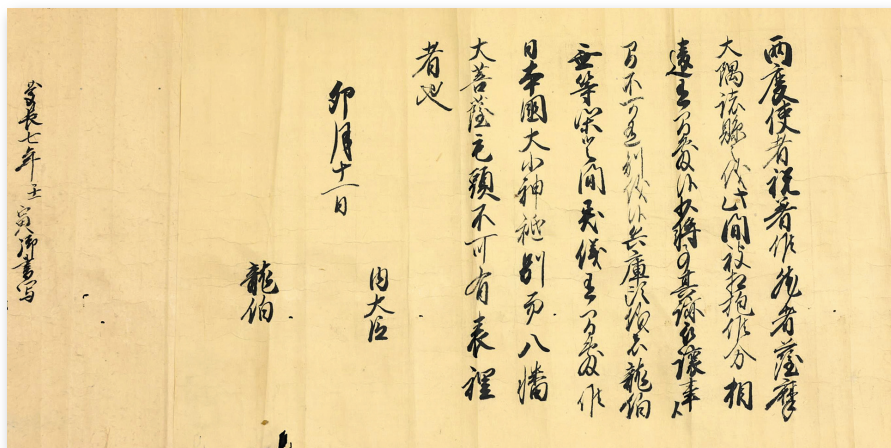 両度使者祝着候然者薩摩
大隅諸縣之儀此間被相抱候分相
違有間敷候少将事其跡被譲事候
間不可有別儀候兵庫頭儀者龍伯
無等閑之間異儀有間敷候
日本國大小神祇別而八幡
大菩薩毛頭不可有表裡
者也
卯月十一日
内大臣
龍伯
慶長七年壬寅御書写